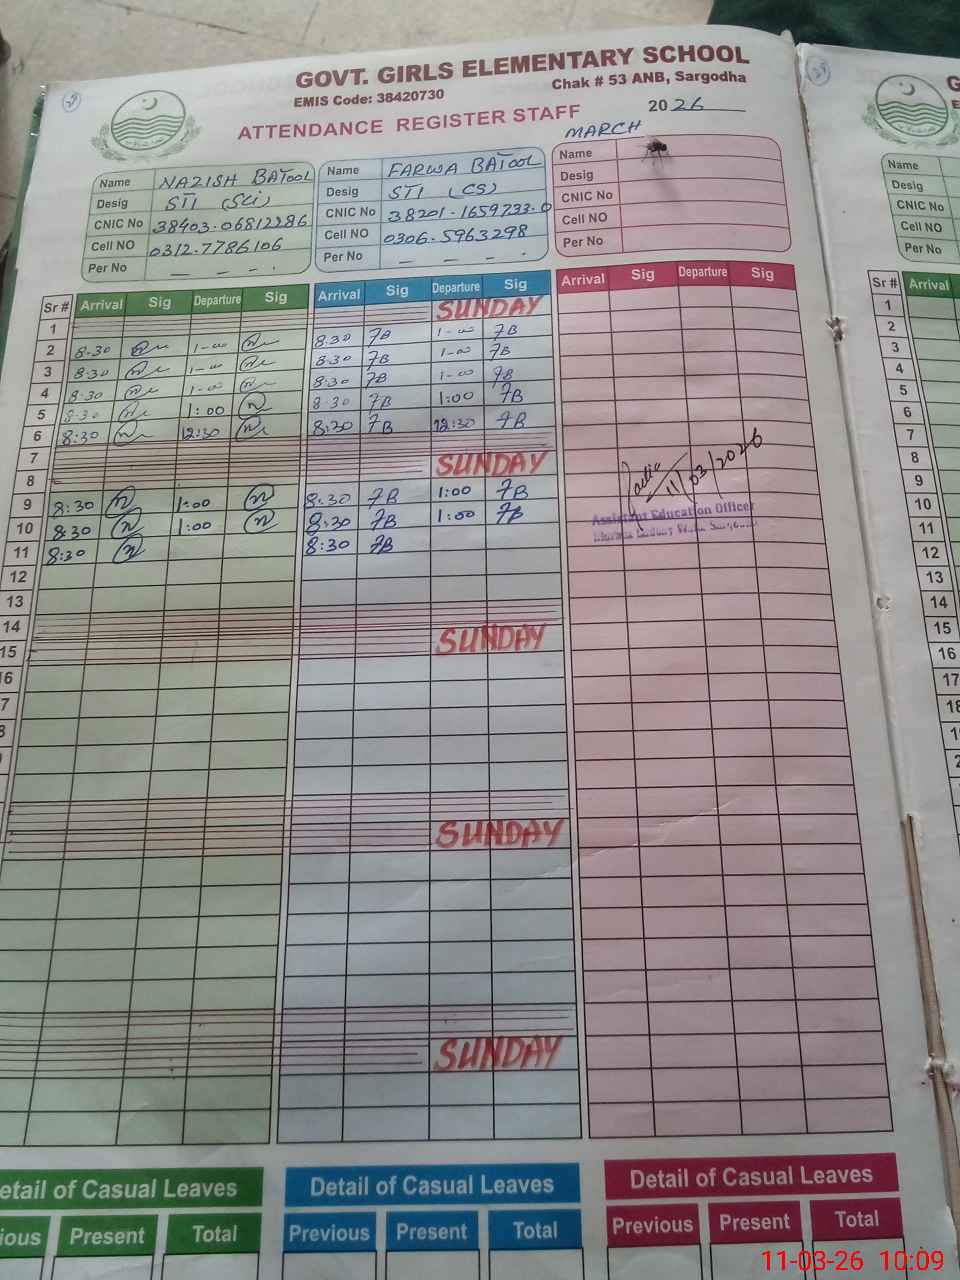 GOVT. GIRLS ELEMENTARY SCHOOL
EMIS Code: 38420730 Chak # 53 ANB, Sargodha
ATTENDANCE REGISTER STAFF 2026
MARCH
Name NAZISH BATOOL Name FARWA BATOOL Name
Desig STI (Sci) Desig STI (CS) Desig
CNIC No 38403-06812286 CNIC No 38201-1659733-0 CNIC No
Cell NO 0312-7786106 Cell NO 0306-5963298 Cell NO
Per No Per No Per No
Sr # Arrival Sig Departure Sig Arrival Sig Departure Sig Arrival Sig Departure Sig
1 SUNDAY
2 8-30 1-00 8:30 FB 1-00 FB
3 8:30 1-00 8:30 FB 1-00 FB
4 8-30 1-00 8:30 FB 1-00 FB
5 8-30 1:00 8-30 FB 1:00 FB
6 8:30 12:30 8:30 FB 12:30 FB
7
8 SUNDAY
9 8:30 1:00 8:30 FB 1:00 FB
10 8:30 1:00 8:30 FB 1:00 FB
11 8:30 8:30 FB
11/03/2026
Assistant Education Officer
12
13
14
15 SUNDAY
16
SUNDAY
SUNDAY
Detail of Casual Leaves Detail of Casual Leaves Detail of Casual Leaves
Previous Present Total Previous Present Total Previous Present Total
Name
Desig
CNIC No
Cell NO
Per No
Sr # Arrival
1
2
3
4
5
6
7
8
9
10
11
12
13
14
15
16
17
18
11-03-26 10:09